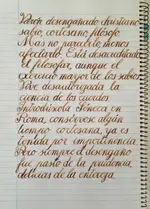 Varón desengañado: christiano
sabio, cortesano filósofo.
Mas no parecerlo, menos
afectarlo. Está desacreditado
el filosofar, aunque el
exercicio mayor de los sabios.
Vive desautorizada la
ciencia de los cuerdos.
Introdúxola Séneca en
Roma, conservóse algún
tiempo cortesana, ya es
tenida por impertinencia.
Pero siempre el desengaño
fue pasto de la prudencia,
delicias de la entereza.